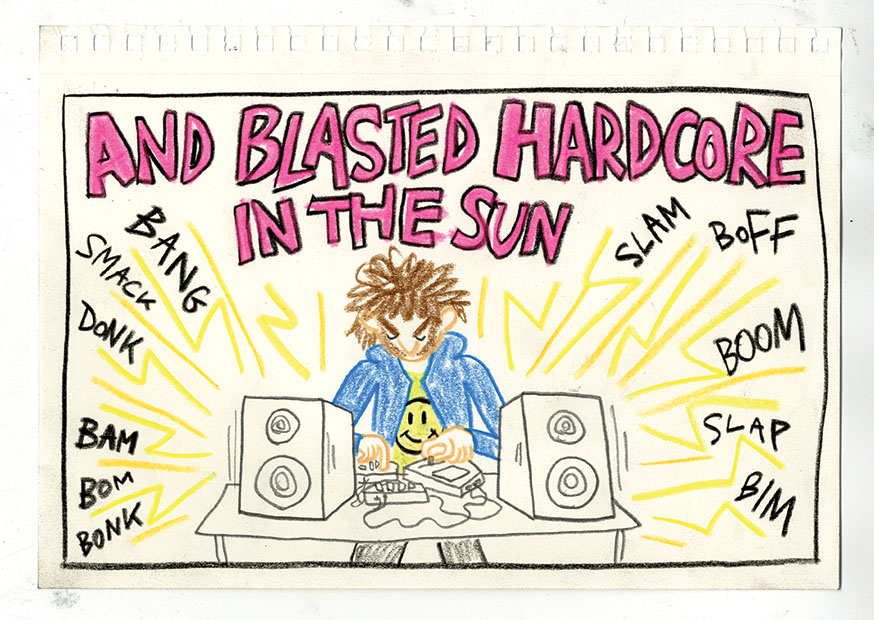 AND BLASTED HARDCORE
IN THE SUN
BANG
SMACK
DONK
BAM
BOM
BONK
SLAM
BOFF
BOOM
SLAP
BIM